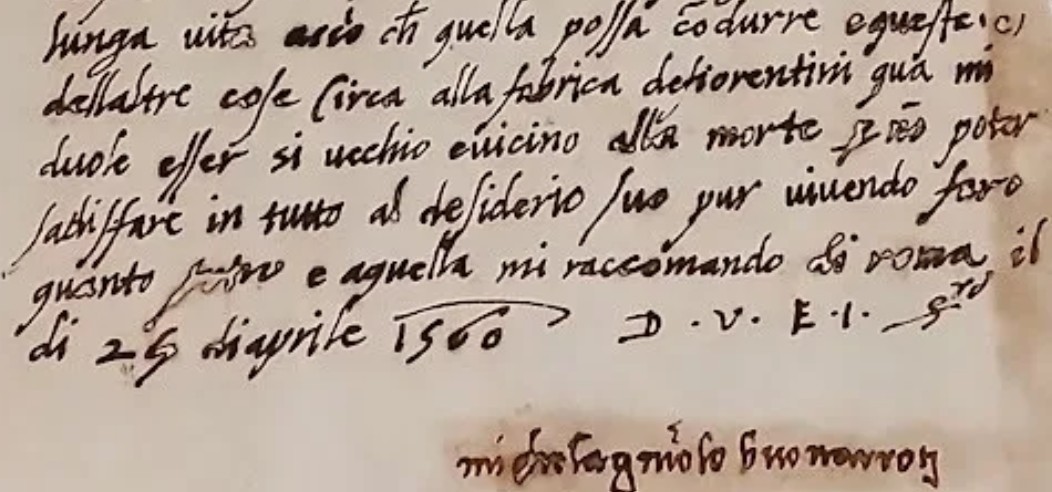 lunga vita acio ch̄ quella possa cōdurre e queste e
dell altre cose Circa alla fabrica de fiorentini qua mi
duole esser si vechio e vicino alla morte p nō poter
sadisfare in tutto al desiderio suo pur vivendo faro
quanto potro e a quella mi raccomando di roma il
di 25 di aprile 1560 D. V. E. I. s.rd
michelagniolo buonarroti